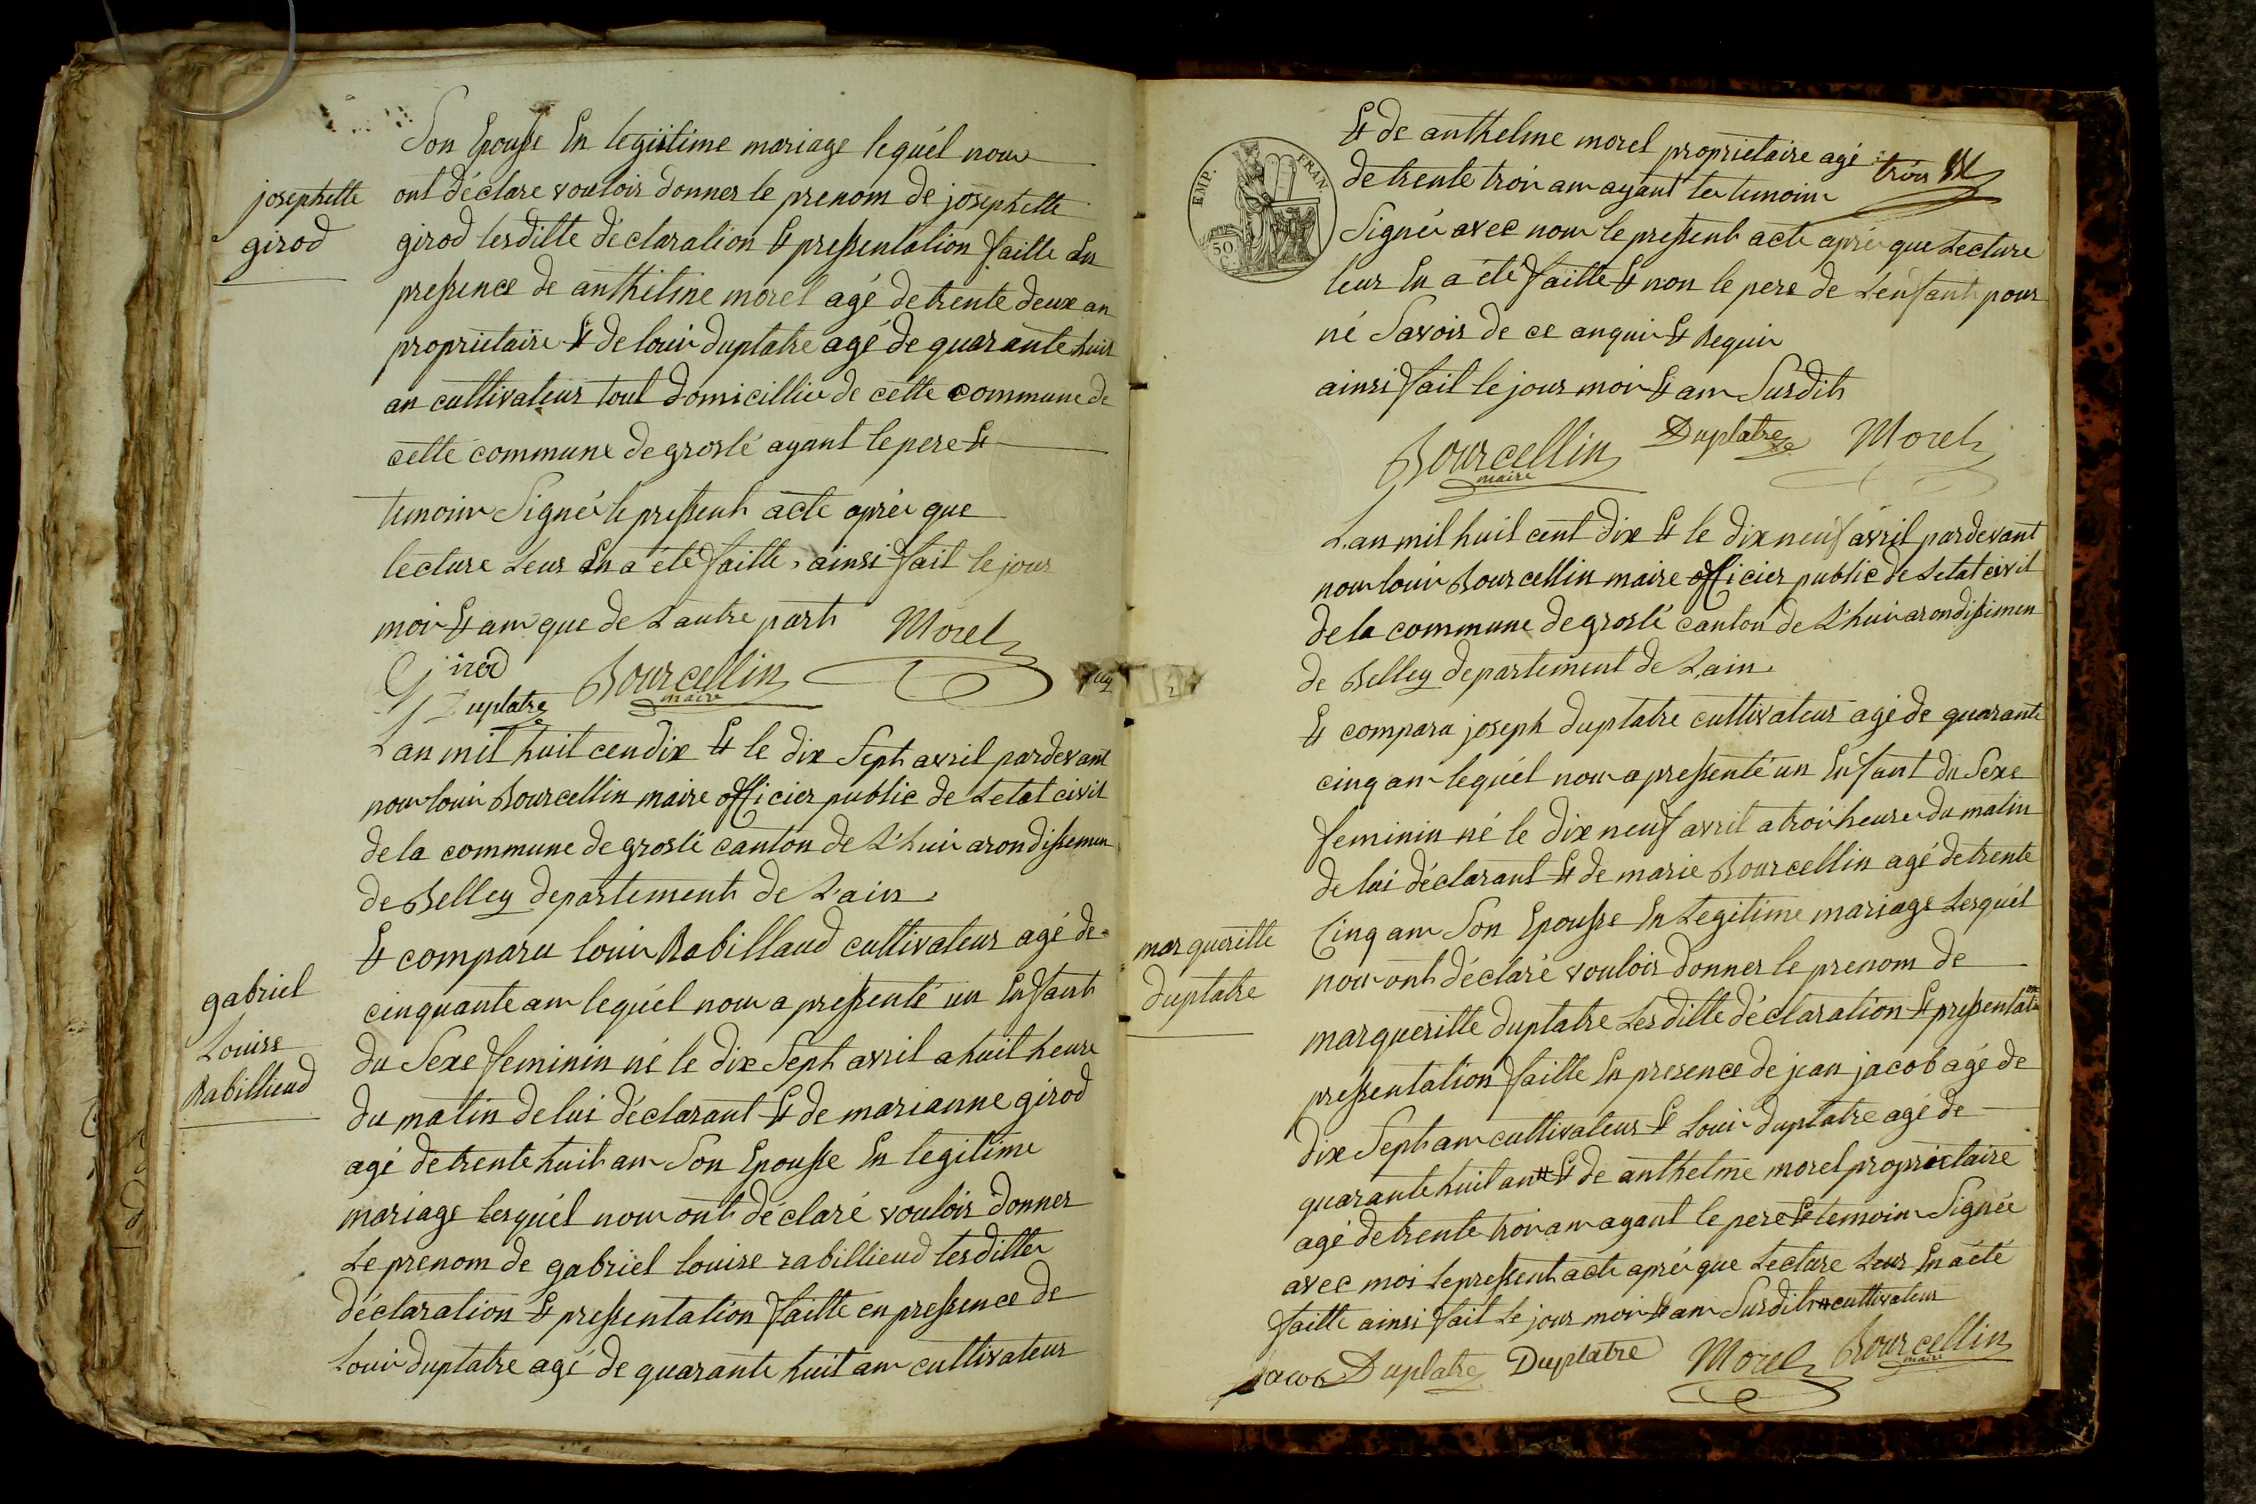 Son Epousse En legistime mariage lequél nous
ont déclare vouloir donner le prenom de josephette
josephette
girod
girod lesditte déclaration Et pressentation faitte En
pressence de anthelme morel agé de trente deux an
propriétaire Et de louis duplatre agé de quarante huit
an cultivateur tout domicillies de cette commune de
cette commune de groslé ayant le pere Et
temoins Signés le pressent acte aprés que
lecture Leur En a été faitte, ainsi fait le jour
mois Et ans que de Lautre part
Morel
Girod
Duplatre
Bourcellin
maire
Lan mil huit cen dix Et le dix Sept avril pardevant
nous louis Bourcellin maire officier public de Letat civil
de la commune de groslé canton de L'huis arondissemen
de Belley departement de Lain.
Et comparu louis Rabillaud cultivateur agé de
cinquante ans lequél nous a pressenté un Enfant
gabriel
Louise
Rabillieud
du Sexe feminin né le dix Sept avril a huit heure
du matin de lui déclarant Et de marianne girod
agé de trente huit ans Son Epousse En legitime
mariage lesquél nous ont déclaré vouloir donner
Le prenom de gabriel louise rabillieud lesdittes
déclaration Et pressentation faitte en pressence de
Louis duplatre agé de quarante huit ans cultivateur
EMP. FRAN.
50
Et de anthelme morel proprietaire agé
de trente trois ans ayant les temoins
trois
Signés avec nous le pressent acte aprés que Lecture
leur En a été faitte Et non le pere de L'enfant pour
né Savoir de ce anquis Et Requis
ainsi fait le jour mois Et ans Susdit
Bourcellin
maire
Duplatre
Morel
Lan mil huit cent dix Et le dix neuf avril pardevant
nous louis Bourcellin maire officier public de Letat civil
de la commune de groslé canton de L'huis arondissimen
de Belley departement de Lain.
Et comparu joseph duplatre cultivateur agé de quarante
cinq ans lequél nous a pressenté un Enfant du Sexe
feminin né le dix neuf avril a trois heures du matin
de lui déclarant Et de marie Bourcellin agé de trente
Cinq ans Son Epousse En Legitime mariage Lesquél
margueritte
duplatre
nous ont déclaré vouloir donner le prenom de
margueritte duplatre Lesditte déclaration Et pressentation
pressentation faitte En presence de jean jacob agé de
dix Sept ans cultivateur Et Louis duplatre agé de
quarante huit an # Et de anthelme morel proprietaire
agé de trente trois ans ayant le pere Et temoins Signée
avec moi Le pressent acte aprés que Lecture Leur En a été
faitte ainsi fait Le jour mois Et ans Susdit # cultivateur
Jacob Duplatre Duplatre Morel Bourcellin
maire